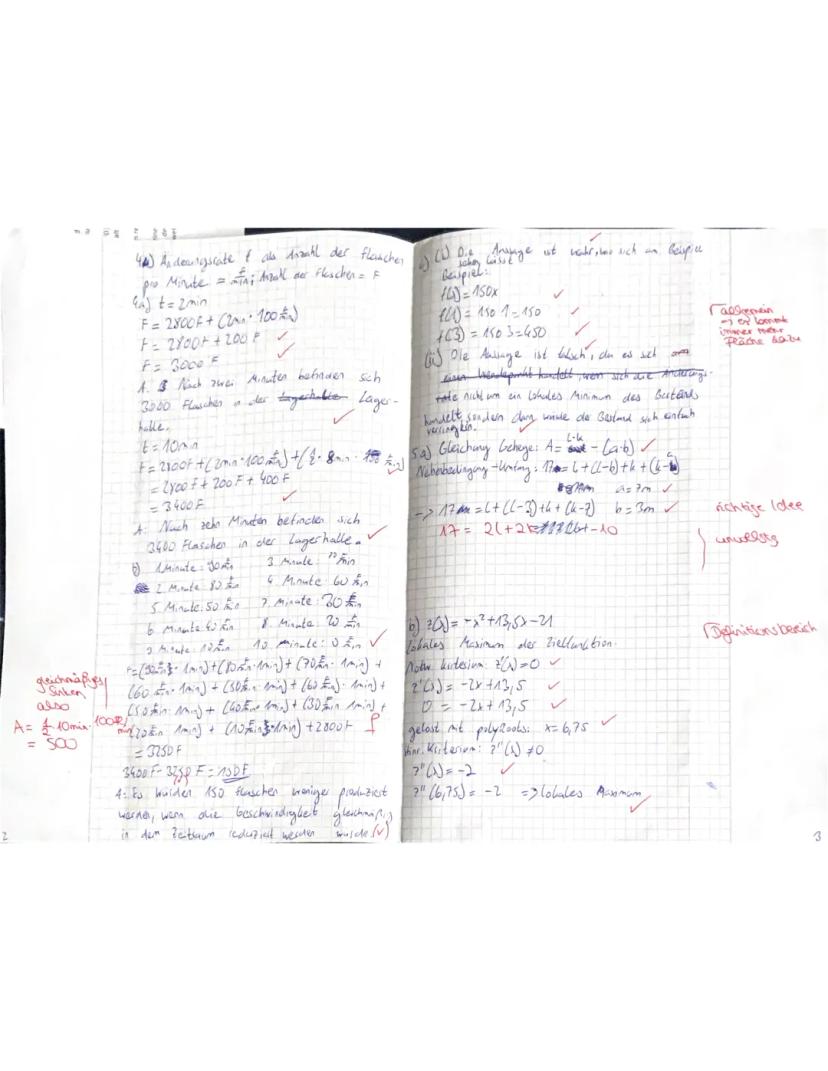 Änderungsrate f als Anzahl der Flaschen
pro Minute = F/min; Anzahl der Flaschen = F
4a) t = 2min
F = 2800F + (2min · 100 F/min)
F = 2800F + 200 F
F = 3000 F
A: Nach zwei Minuten befinden sich
3000 Flaschen in der Lager-
halle.
t = 10min
= 2800F + 200F + 400F
= 3400F
A: Nach zehn Minuten befinden sich
3400 Flaschen in der Lagerhalle.
b) 1. Minute: 90 F/min 3. Minute: 70 F/min
2. Minute: 80 F/min 4. Minute: 60 F/min
5. Minute: 50 F/min 7. Minute: 30 F/min
6. Minute: 40 F/min 8. Minute: 20 F/min
9. Minute: 10 F/min 10. Minute: 0 F/min
F = (90 F/min · 1min) + (80 F/min · 1min) + (70 F/min · 1min) +
(60 F/min · 1min) + (50 F/min · 1min) + (60 F/min) · 1min) +
(50 F/min · 1min) + (40 F/min · 1min) + (30 F/min · 1min) +
(20 F/min · 1min) + (10 F/min · 1min) + 2800F
= 3250F
3400F - 3250F = 150F
A: Es würden 150 Flaschen weniger produziert
werden, wenn die Geschwindigkeit gleichmäßig
in dem Zeitraum reduziert werden würde. (✓)
gleichmäßiges
Sinken
also
A = 1/2 · 10min · 100
= 500
2
c) (i) Die Aussage ist wahr, was sich am Beispiel
sehen lässt
Beispiel:
f(x) = 150x
f(1) = 150 · 1 = 150
f(3) = 150 · 3 = 450
(ii) Die Aussage ist falsch, da es sich
nicht um ein lokales Minimum des Bestands
handelt, sondern dann würde der Bestand sich einfach
verringern.
allgemein
→ es kommt
immer mehr
Fläche dazu
5a) Gleichung Gehege: A = l·k - (a·b)
Nebenbedingung - Umfang: 17 = l + (l-b) + k + (k-a)
a = 7m
-> 17 = l + (l-3) + k + (k-7) b = 3m
17 = 2l + 2k - 10
richtige Idee
unvollstg
b) z(x) = -x² + 13,5x - 21
lokales Maximum der Zielfunktion
Notw. Kriterium: z'(x) = 0
z'(x) = -2x + 13,5
0 = -2x + 13,5
gelöst mit polyRoots: x = 6,75
hinr. Kriterium: z''(x) ≠ 0
z''(x) = -2
z''(6,75) = -2 => lokales Maximum
Definitionsbereich
3